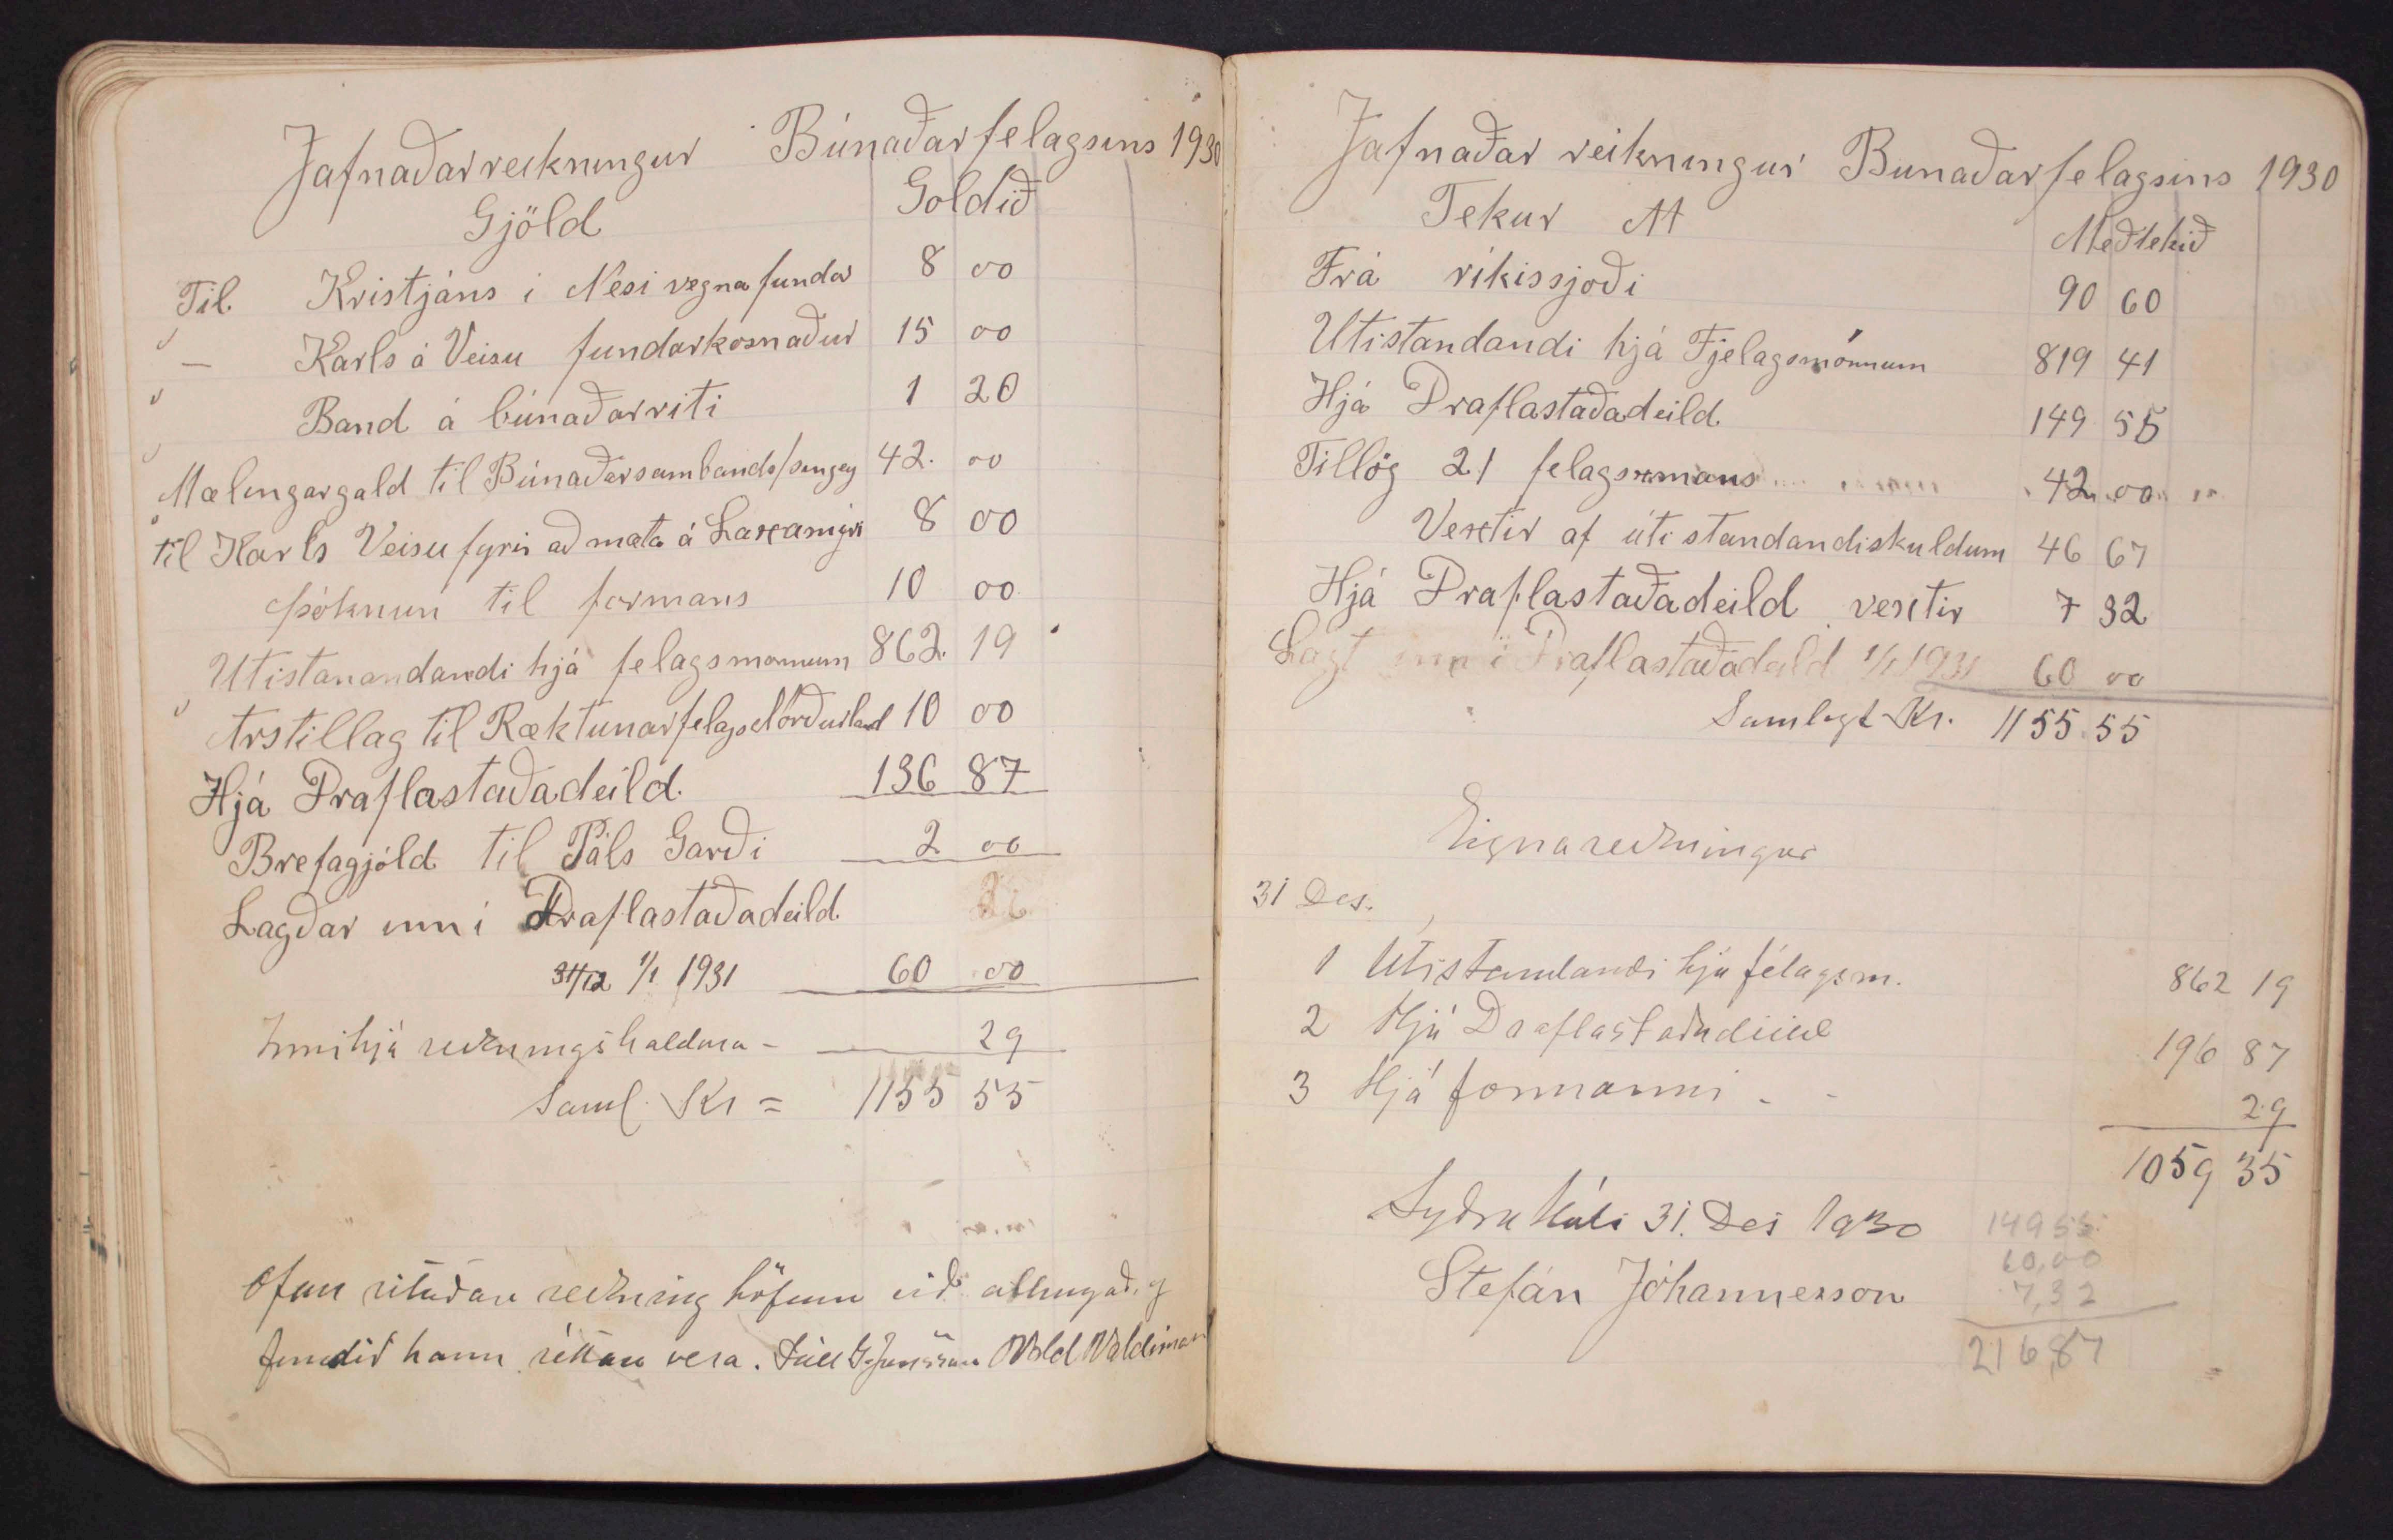 Jafnaðarreikningur Búnaðarfelagsins 1930
Gjöld Goldið
Til Kristjáns i Nesi vegna fundar 8 00
— Karls á Veisu fundarkosnaður 15 00
Band á búnaðarriti 1 20
Mælingargald til Búnaðarsambands 42. 00
til Karls Veisu fyrir að mæta á Laxamýri 8 00
þóknun til formans 10 00
Utistanandandi hjá felagsmonnum 862. 19
Arstillag til Ræktunarfelags Norðurland 10 00
Hjá Draflastaðadeild. 136 87
Brefagjöld til Páls Garði 2 00
Lagðar inn i Draflastaðadeild
31/12 1/1 1931 60 00
Inni hjá reikningshaldara - 29
Saml. Kr = 1155 55
Ofan ritaðan reikning höfum við athugað. og
fundið hann réttan vera. Vald Valdimar
Jafnaðar reikningur Bunaðarfelagsins 1930
Tekur Meðtekið
Frá ríkissjoði 90 60
Utistandandi hjá Fjelagsmönnum 819 41
Hjá Draflastaðadeild. 149 55
Tillög 21 felagsmans 42 00
Vextir af úti standandiskuldum 46 67
Hjá Draflastaðadeild vextir 7 32
Lagt inn i Draflastaðadeild 1/1 1931 60 00
Samlagt Kr. 1155 55
Eignareikningur
31 Des.
1 Utistandandi hjá félagsm. 862 19
2 Hjá Draflastaðadeild 196 87
3 Hjá formanni - - 29
1059 35
Syðra Hóli 31. Des 1930
Stefán Jóhannesson
149 55
60,00
7,32
216,87